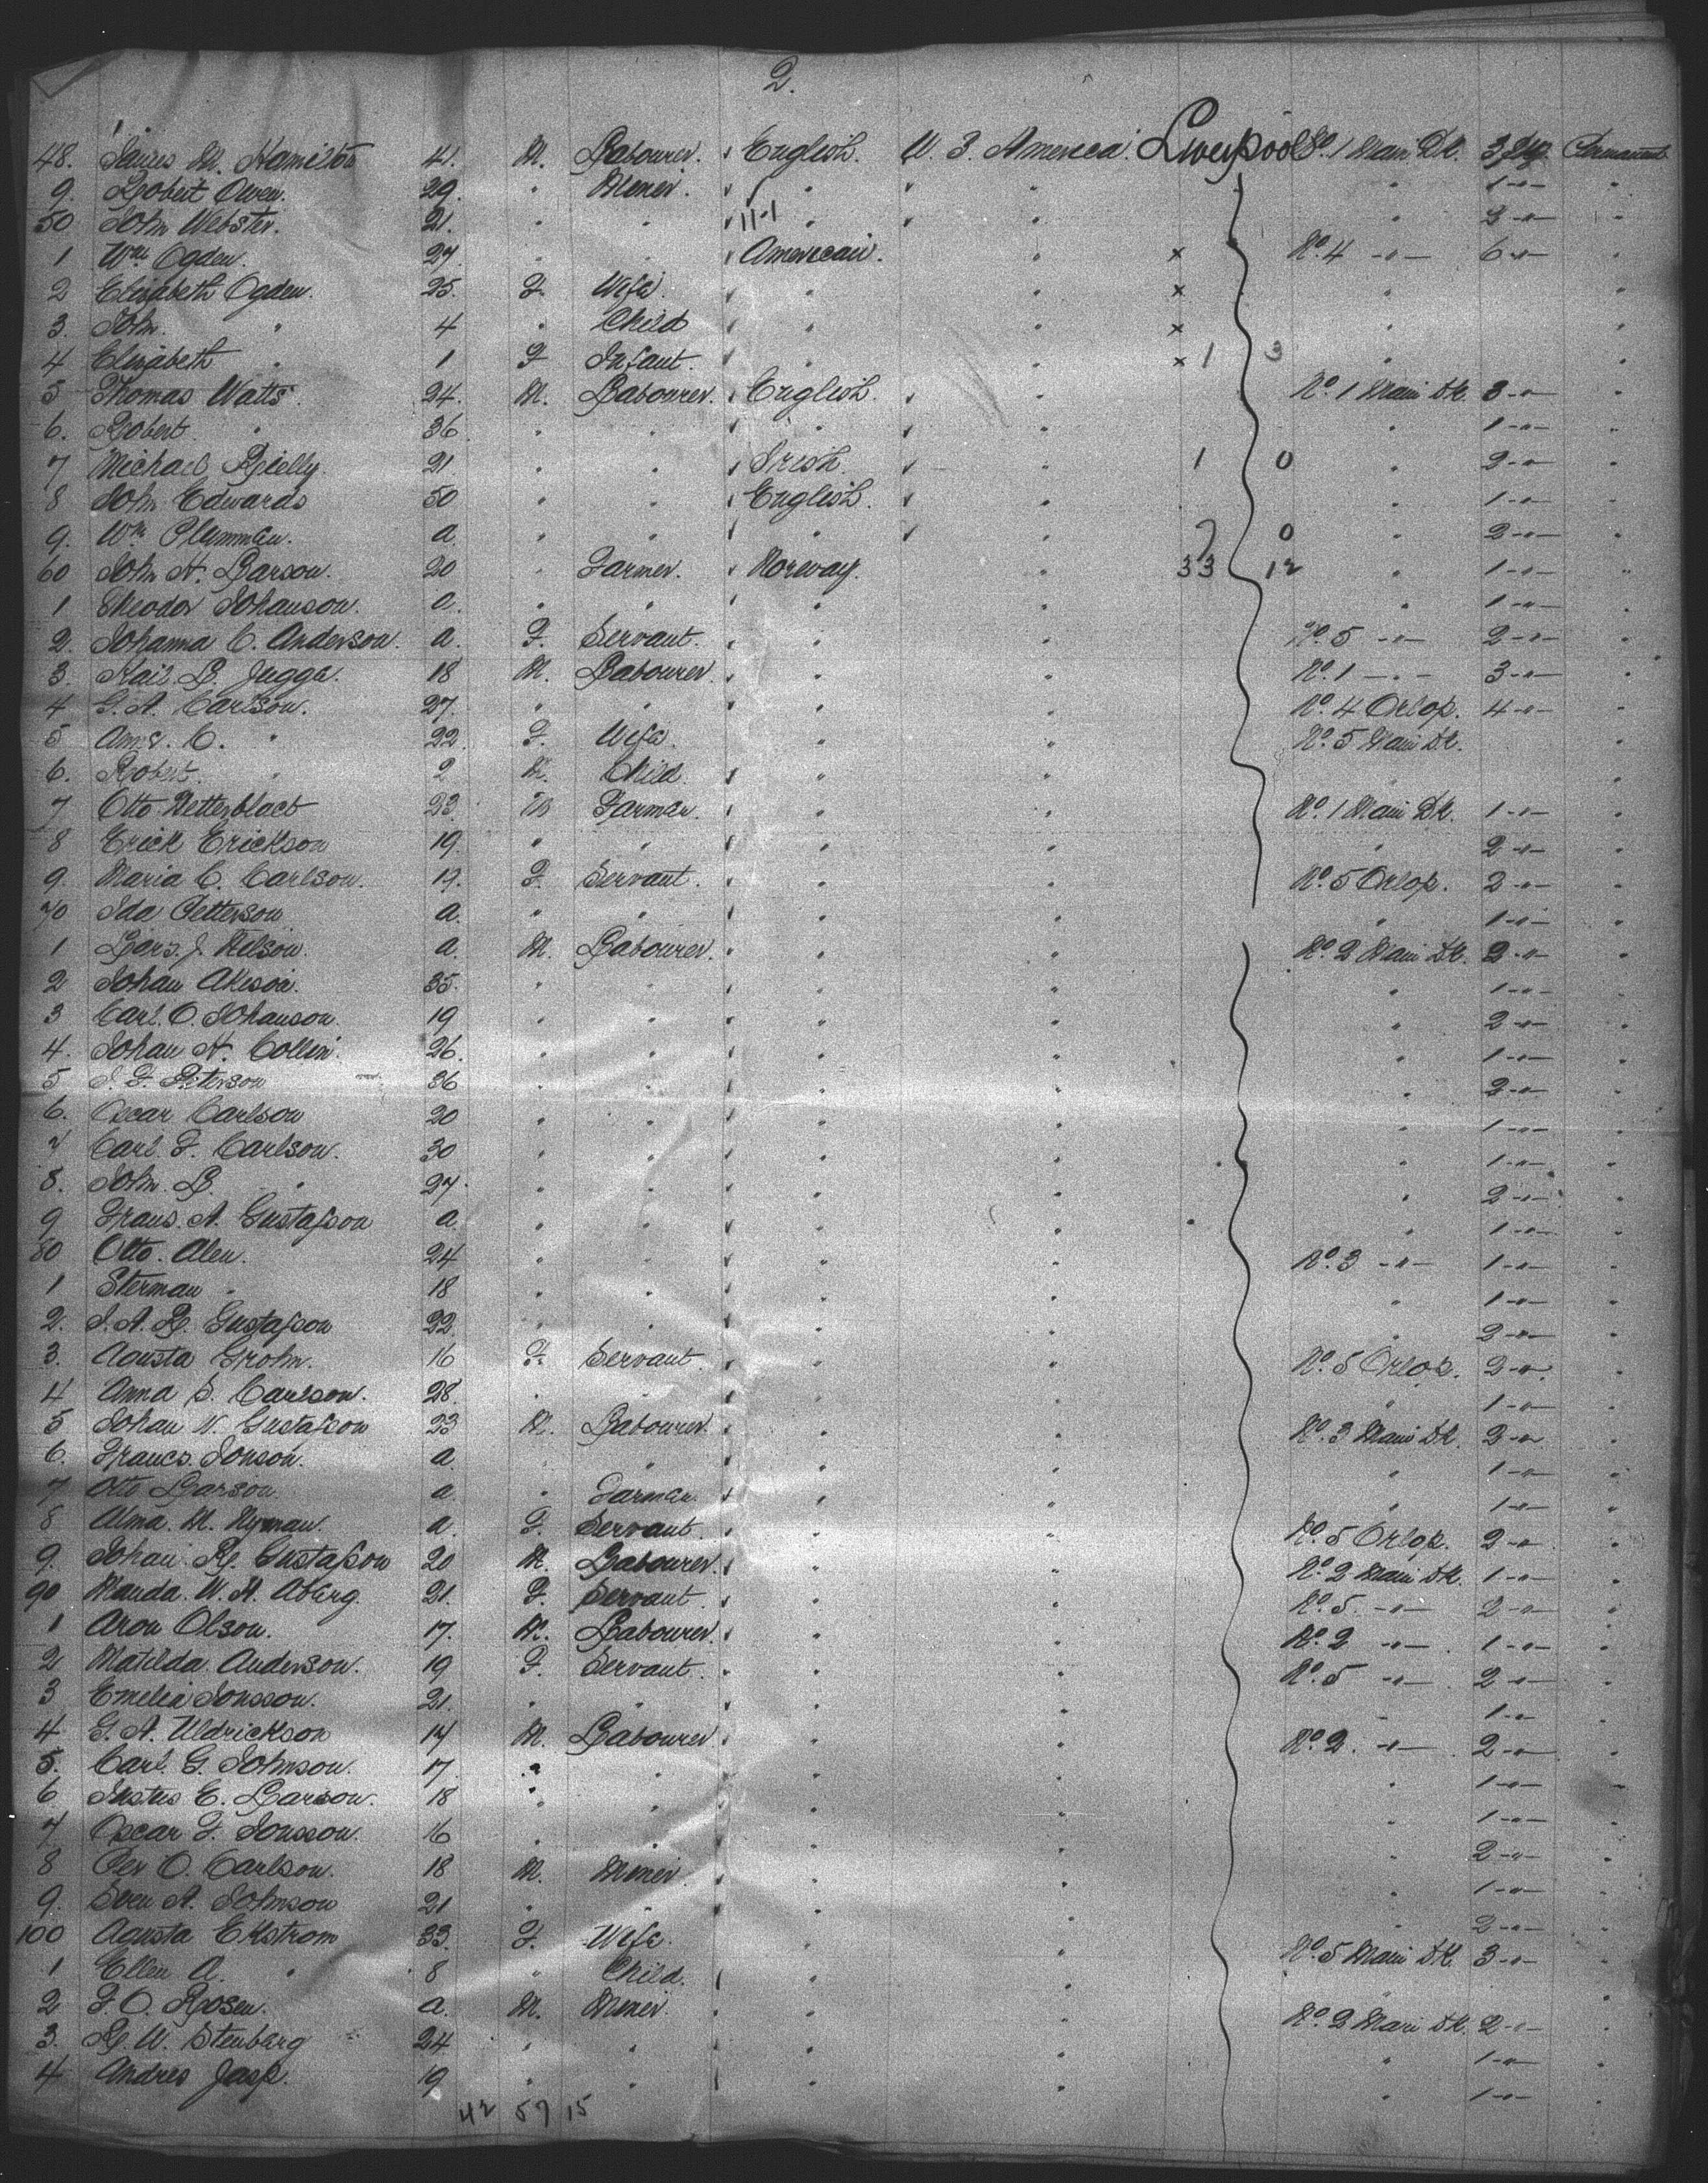 2.
48. James M. Hamilton 41. M. Labourer. English. U. S. America. Liverpool No. 1 Main Dk. 3 Permanent
9. Robert Owen. 29. " Miner. " " " 1 -"- "
50 John Webster. 21. " " 11-1 " " " 3 -"- "
1 Wm Ogden. 27. " " American. " x No. 4 -"- 6 -"- "
2 Elizabeth Ogden. 25. F. Wife. " " x " "
3. John. " 4 " Child " " x " "
4 Elizabeth " 1 F Infant. " " x 1 3 " "
5 Thomas Watts. 24. M. Labourer. English. " No. 1 Main Dk. 3 -"- "
6. Robert. " 36 " " " " " 1 -"- "
7 Michael Rielly. 21 " " Irish. " 1 0 " 2 -"- "
8 John Edwards 50 " " English. " " 1 -"- "
9. Wm a. " " " " 0 " 2 -"- "
60 John H. Larson. 20 " Farmer. Norway. " 33 12 " 1 -"- "
1 Theodor Johanson. a. " " " " " 1 -"- "
2. Johanna C. Anderson. a F. Servant. " " No. 5 -"- 2 -"- "
3. L. Jugga. 18 M. Labourer. " " No. 1 -"- 3 -"- "
4 G. A. Carlson. 27. " " " " No. 4 Orlop. 4 -"- "
5 C. " 22. F. Wife. " " No. 5 Main Dk. "
6. Robert. " 2 M. Child. " " " "
7 Otto Zetterblact 23. M Farmer. " " No. 1 Main Dk. 1 -"- "
8 Erick Erickson 19. " " " " " 2 -"- "
9. Maria C. Carlson. 19. F. Servant. " " No. 5 Orlop. 2 -"- "
70 Ida Petterson a. " " " " " 1 -"- "
1 Lars. J. Nelson. a. M. Labourer. " " No. 2 Main Dk. 2 -"- "
2 Johan Akeson. 35. " " " " " 1 -"- "
3 Carl. O. Johanson. 19 " " " " " 2 -"- "
4. Johan H. Collin. 26. " " " " " 1 -"- "
5 J. F. Peterson 36 " " " " " 2 -"- "
6. Oscar Carlson 20 " " " " " 1 -"- "
7 Carl. F. Carlson. 30 " " " " " 1 -"- "
8. John. L. " 27. " " " " " 2 -"- "
9 Frans. A. Gustafson a " " " " " 1 -"- "
80 Otto. Alen. 24 " " " " No. 3 -"- 1 -"- "
1 Sterman " 18 " " " " " 1 -"- "
2. J. A. R. Gustafson 22. " " " " " 2 -"- "
3. Agusta Grohn. 16 F. Servant. " " No. 5 Orlop. 2 -"- "
4 Anna S. Carlson. 28. " " " " " 1 -"- "
5 Johan N. Gustafson 23 M. Labourer. " " No. 3 Main Dk. 2 -"- "
6. Francs. Jonson. a. " " " " " 1 -"- "
7 Otto Larson. a. " Farmer. " " " 1 -"- "
8 Alma. M. Nyman. a. F. Servant. " " No. 5 Orlop. 2 -"- "
9. Johan. R. Gustafson 20 M. Labourer. " " No. 2 Main Dk. 1 -"- "
90 Manda. W. A. Aberg. 21. F. Servant. " " No. 5. -"- 2 -"- "
1 Aron Olson. 17. M. Labourer. " " No. 2 -"- 1 -"- "
2 Matilda Anderson. 19 F. Servant. " " No. 5 -"- 2 -"- "
3 Emelia Jonsson. 21. " " " " " 1 -"- "
4 G. A. Uldrickson 17 M. Labourer " " No. 2. -"- 2 -"- "
5. Carl. G. Johnson. 17. " " " " " 1 -"- "
6 Justus E. Larson. 18 " " " " " 1 -"- "
7 Oscar F. Jonsson. 16 " " " " " 2 -"- "
8 Per O. Carlson. 18 M. Miner. " " " 1 -"- "
9. Sven A. Johnson 21 " " " " " 2 -"- "
100 Agusta Ekstrom 33. F. Wife. " " No. 5 Main Dk. 3 -"- "
1 Ellen A. " 8 " Child. " " " "
2 F. O. Rosen. a. M. Miner. " " No. 2 Main Dk. 2 -"- "
3. R. W. Stenberg 24 " " " " " 1 -"- "
4 Andres Jasp. 19 " " " " " 1 -"- "
42 57 15